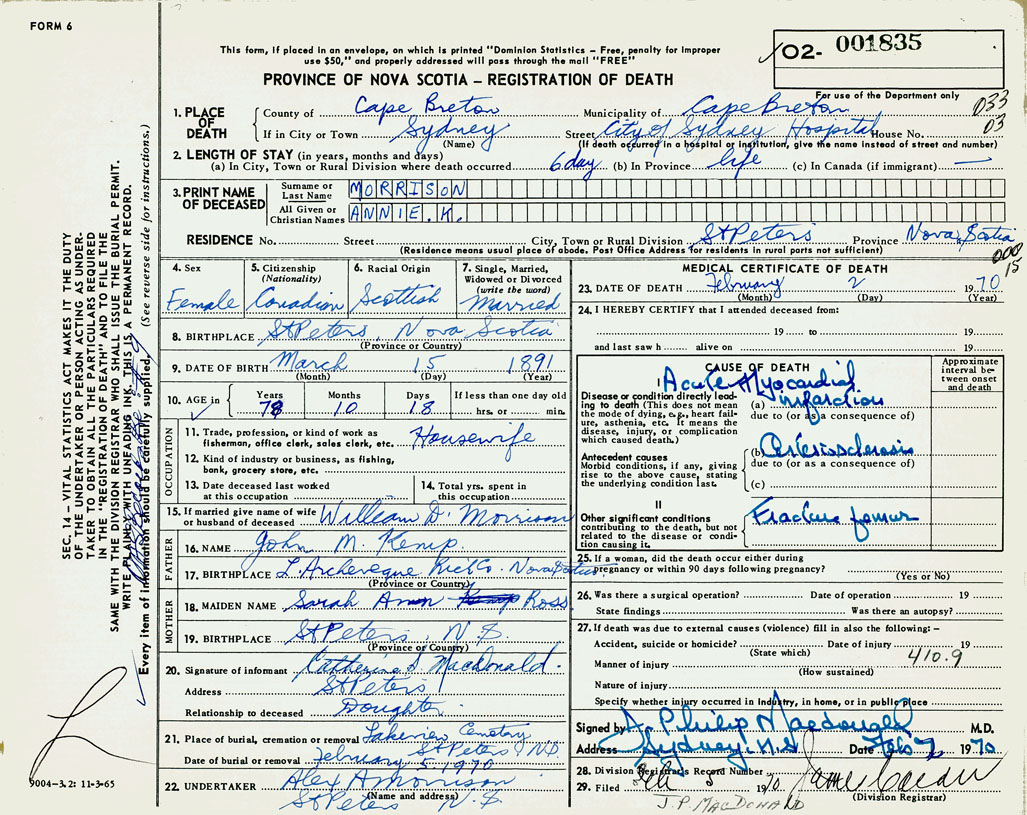 FORM 6
This form, if placed in an envelope, on which is printed "Dominion Statistics – Free, penalty for improper
use $50," and properly addressed will pass through the mail "FREE"
O2- 001835
PROVINCE OF NOVA SCOTIA – REGISTRATION OF DEATH
For use of the Department only
033
03
1. PLACE OF DEATH
County of Cape Breton Municipality of Cape Breton
If in City or Town Sydney Street City of Sydney Hospital House No.
(Name) (If death occurred in a hospital or institution, give the name instead of street and number)
2. LENGTH OF STAY (in years, months and days)
(a) In City, Town or Rural Division where death occurred 6 day (b) In Province life (c) In Canada (if immigrant) —
3. PRINT NAME OF DECEASED
Surname or Last Name MORRISON
All Given or Christian Names ANNIE.K.
RESIDENCE No. Street City, Town or Rural Division St Peters Province Nova Scotia
(Residence means usual place of abode. Post Office Address for residents in rural parts not sufficient)
000
15
4. Sex Female
5. Citizenship (Nationality) Canadian
6. Racial Origin Scottish
7. Single, Married, Widowed or Divorced (write the word) Married
8. BIRTHPLACE St Peters, Nova Scotia
(Province or Country)
9. DATE OF BIRTH March 15 1891
(Month) (Day) (Year)
10. AGE in Years 78 Months 10 Days 18 If less than one day old hrs. or min.
OCCUPATION
11. Trade, profession, or kind of work as fisherman, office clerk, sales clerk, etc. Housewife
12. Kind of industry or business, as fishing, bank, grocery store, etc.
13. Date deceased last worked at this occupation
14. Total yrs. spent in this occupation
15. If married give name of wife or husband of deceased William D. Morrison
FATHER
16. NAME John M. Kemp.
17. BIRTHPLACE L'Archeveque Rich Co. Nova Scotia
(Province or Country)
MOTHER
18. MAIDEN NAME Sarah Ann Kemp Ross
19. BIRTHPLACE St Peters, N.S.
(Province or Country)
20. Signature of informant Catherine S. MacDonald.
Address St Peters
Relationship to deceased Doughter.
21. Place of burial, cremation or removal Lakeview Cemetary St Peters N.S.
Date of burial or removal February 5 1970
22. UNDERTAKER Alex A Morrison
(Name and address)
St Peters N.S
MEDICAL CERTIFICATE OF DEATH
23. DATE OF DEATH February 2 1970
(Month) (Day) (Year)
24. I HEREBY CERTIFY that I attended deceased from:
19 to 19
and last saw h alive on 19
CAUSE OF DEATH
Approximate interval between onset and death
I
Disease or condition directly leading to death (This does not mean the mode of dying, e.g., heart failure, asthenia, etc. It means the disease, injury, or complication which caused death.)
(a) Acute Myocardial infarction
due to (or as a consequence of)
Antecedent causes
Morbid conditions, if any, giving rise to the above cause, stating the underlying condition last.
(b) Arteriosclerosis
due to (or as a consequence of)
(c)
II
Other significant conditions contributing to the death, but not related to the disease or condition causing it.
Fracture femur
25. If a woman, did the death occur either during pregnancy or within 90 days following pregnancy?
(Yes or No)
26. Was there a surgical operation? Date of operation 19
State findings Was there an autopsy?
27. If death was due to external causes (violence) fill in also the following: –
Accident, suicide or homicide? Date of injury 19
(State which)
410.9
Manner of injury
(How sustained)
Nature of injury
Specify whether injury occurred in Industry, in home, or in public place
Signed by A. Philip Macdougall M.D.
Address Sydney. N.S Date Feb 2 1970
28. Division Registrars Record Number
29. Filed Feb 5 1970.
(Division Registrar)
J.P. MACDONALD
SEC. 14 – VITAL STATISTICS ACT MAKES IT THE DUTY
OF THE UNDERTAKER OR PERSON ACTING AS UNDER-
TAKER TO OBTAIN ALL THE PARTICULARS REQUIRED
IN THE "REGISTRATION OF DEATH" AND TO FILE THE
SAME WITH THE DIVISION REGISTRAR WHO SHALL ISSUE THE BURIAL PERMIT.
WRITE PLAINLY WITH UNFADING INK. THIS IS A PERMANENT RECORD.
Every item of information should be carefully supplied. (See reverse side for instructions.)
9004–3.2: 11-3-65